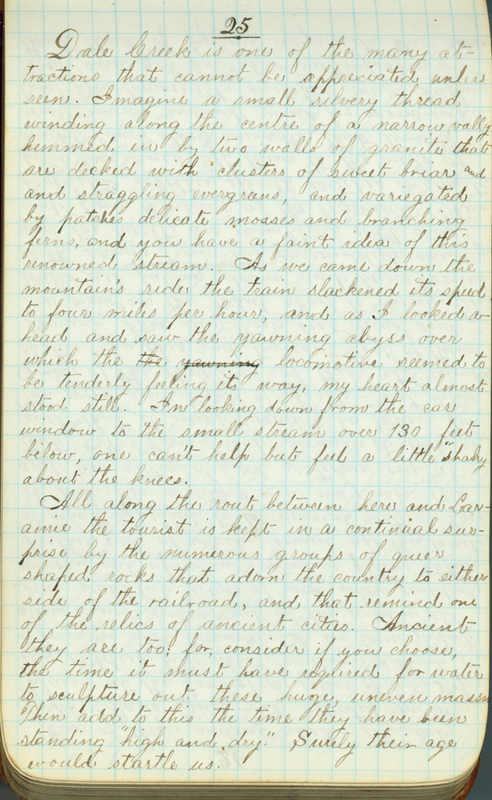 25
Dale Creek is one of the many at-
tractions that cannot be appreciated unless
seen. Imagine a small silvery thread
winding along the centre of a narrow vally
hemmed in by two walls of granite that
are decked with clusters of sweet briar and
and straggling evergreens, and variegated
by patches delicate mosses and branching
ferns, and you have a faint idea of this
renowned stream. As we came down the
mountain's side the train slackened its speed
to four miles per hour, and as I looked a-
head and saw the yawning abyss over
which the the yawning locomotive seemed to
be tenderly feeling it way, my heart almost
stood still. In looking down from the car
window to the small stream over 130 feet
below, one can't help but feel a little "shaky"
about the knees.
All along the rout between here and Lar-
amie the tourist is kept in a continual sur-
prise by the numerous groups of queer
shaped rocks that adorn the country to either
side of the railroad, and that remind one
of the relics of ancient cities. Ancient
they are too; for, consider if you choose,
the time it must have required for water
to sculpture out these huge, uneven masses
Then add to this the time they have been
standing "high and dry." Surely their age
would startle us.